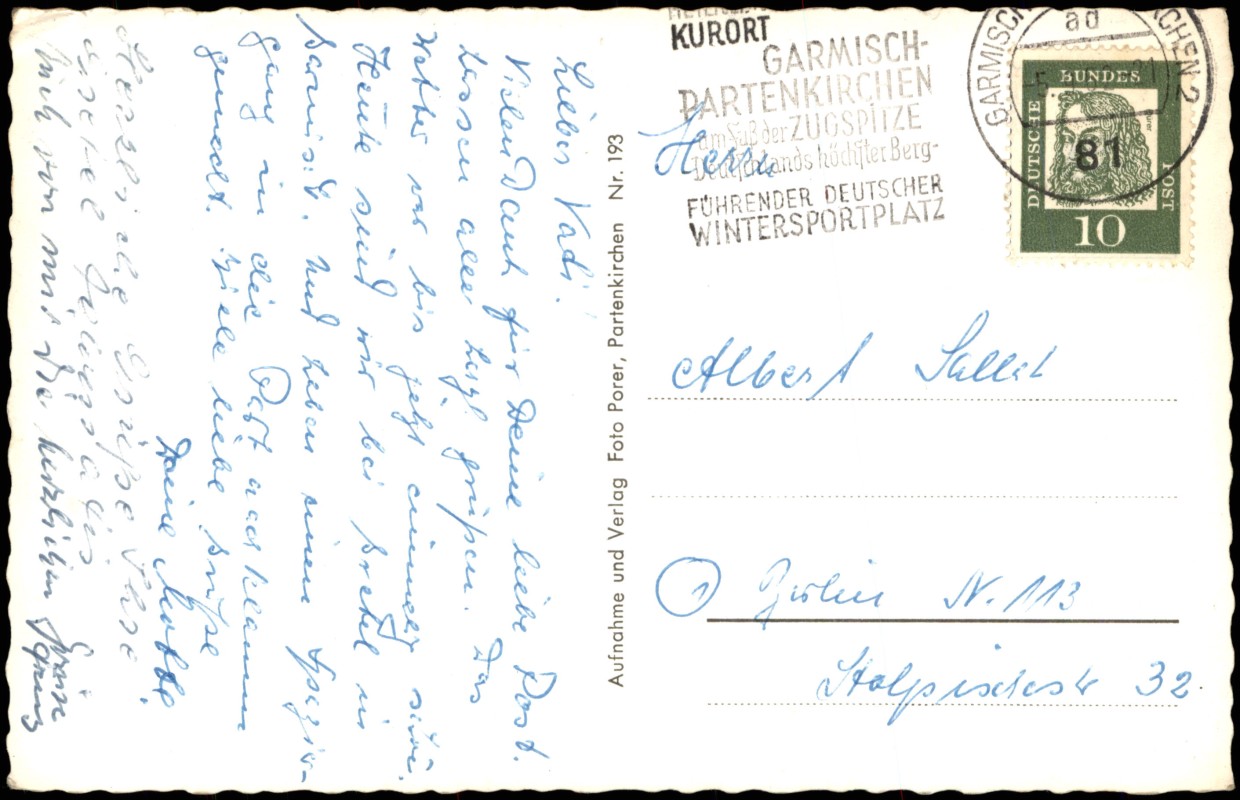 Lieber Vadi.
Vielen Dank für Deine liebe Post.
Lassen alle herzl. grüßen. Das
Wetter war bis jetzt immer schön.
Heute sind wir bei in
und haben einen Spazier-
gang in die Partnachklamm
gemacht. Viele liebe Grüße
Deine
Herzliche Grüße Ihre
Auch von mir die herzlichen Grüße
Aufnahme und Verlag Foto Porer, Partenkirchen Nr. 193
KURORT
GARMISCH-
PARTENKIRCHEN
am Fuß der ZUGSPITZE
Deutschlands höchster Berg-
FÜHRENDER DEUTSCHER
WINTERSPORTPLATZ
GARMISCH-PARTENKIRCHEN 2
ad
81
DEUTSCHE BUNDESPOST
10
Herrn
Albert Sallat
1 Berlin N. 113
Stolpischestr 32